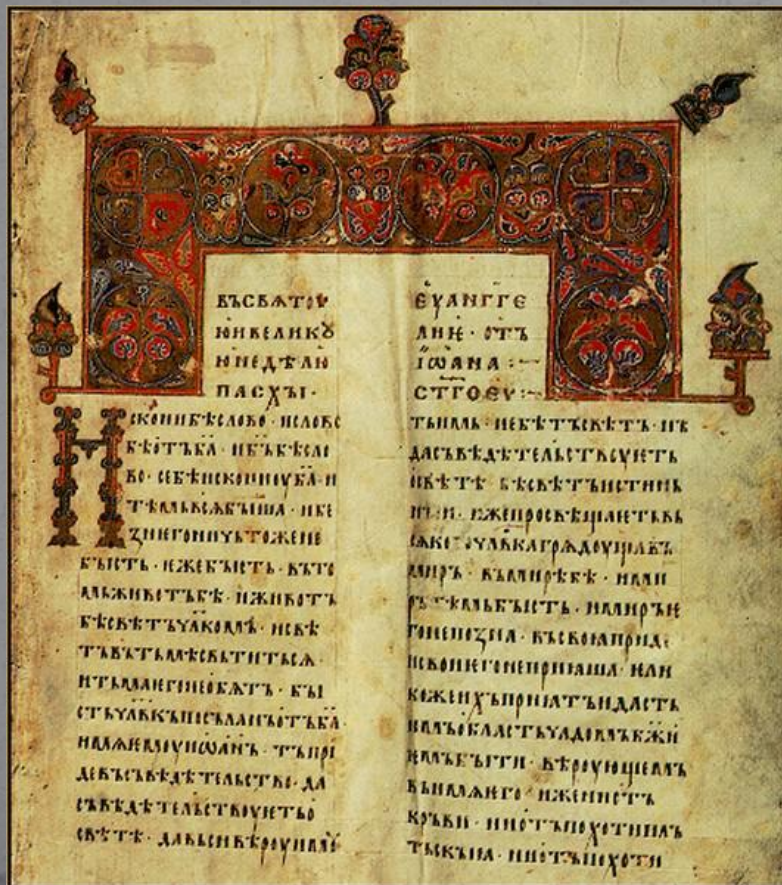 ВЪСВѦТОУ
ЮИВЕЛИКꙊ
ЮНЕДѢЛЮ
ПАСХЪІ·
ИСКОНИБѢСЛОВО· ИСЛОВО
БѢОТЪБА҃· ИБЪ҃БѢСЛО
ВО· СЕБѢИСКОНИОУБА҃· И
ТѢМЬВСѦБЫША· ИБЕ
ЗНЕГОНИЧЬТОЖЕНЕ
БЫСТЬ· ЕЖЕБЫСТЬ· ВЪТО
МЬЖИВОТЪБѢ· ИЖИВОТЪ
БѢСВѢТЪЧЛ҃КОМЪ· ИСВѢ
ТЪВЪТЬМѢСВЬТИТЬСѦ·
ИТЬМАЕГОНЕОБѦТЪ· БЫ
СТЬЧЛ҃ВКЪПОСЪЛАНЪОТЪБА҃·
ИМѦѤМОУИѠАНЪ· ТЪПРИ
ДЕВЪСЪВѢДѢТЕЛЬСТВО· ДА
СЪВѢДѢТЕЛЬСТВОУѤТЬО
СВѢТѢ· ДАВЬСИВѢРОУИМОУ
ЕѴАНГГЕ
ЛИѤ· ОТЪ
ІѠАНА :~
СТ҃ГОЕѴ·
ТЬИМЬ· НЕБѢТЪСВѢТЪ· НЪ
ДАСЪВѢДѢТЕЛЬСТВОУѤТЬ
ОСВѢТѢ· БѢСВѢТЪИСТИНЬ
НЫИ· ИЖЕПРОСВѢЩАѤТЬВЬ
СѦКОГОЧЛ҃ВКАГРѦДОУЩАВЪ
МИРЪ· ВЪМИРѢБѢ· ИМИ
РЪТѢМЬБЫСТЬ· ИМИРЪѤ
ГОНЕПОЗНА· ВЪСВОꙖПРИДЕ·
ИСВОИѤГОНЕПРИꙖША· ЕЛИ
КОЖЕИХЪПРИꙖТЪИДАСТЬ
ИМЪОБЛАСТЬЧАДОМЪБЖ҃И
ѤМЪБЫТИ· ВѢРОУЮЩЕМЪ
ВЪИМѦѤГО· ИЖЕНИОТЪ
КРЪВИ· НИОТЪПОХОТИПЛЪ
ТЬСКЫꙖ· НИОТЪПОХОТИ